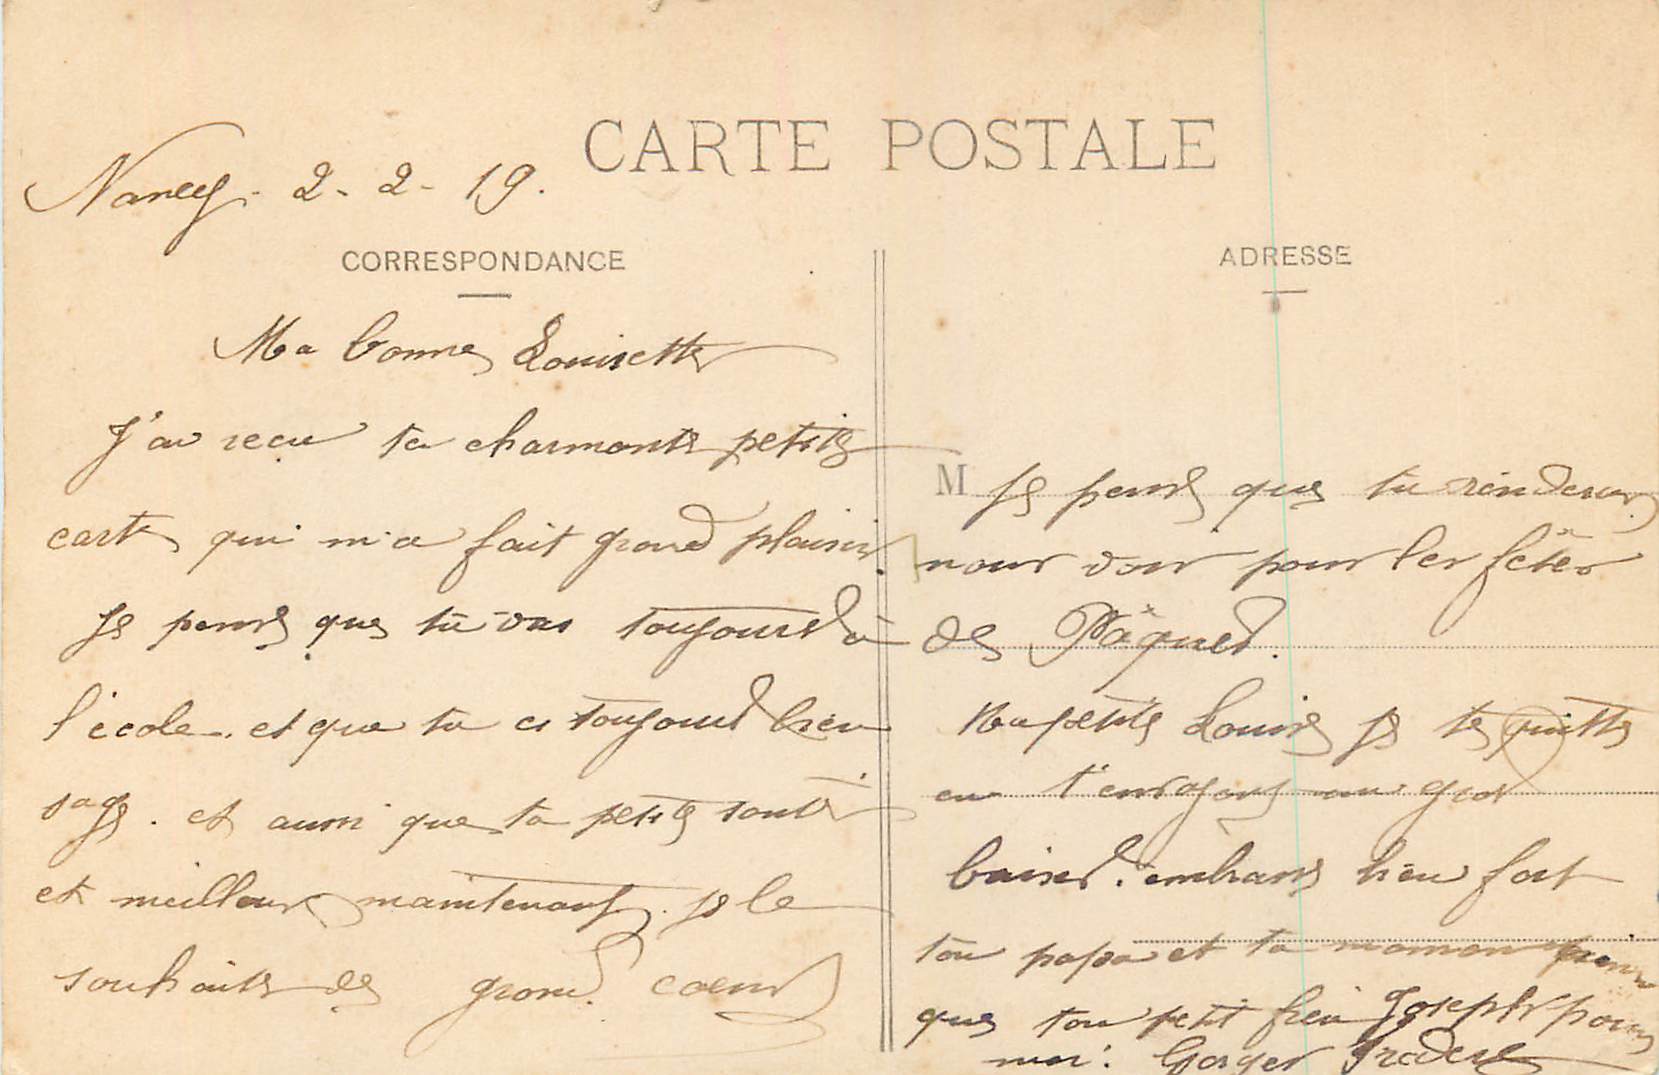 CARTE POSTALE
Nancy. 2-2-19.
CORRESPONDANCE
Ma bonne Louisette
J'ai reçu ta charmante petite
carte qui m'a fait grand plaisir.
Je pense que tu vas toujours à
l'école. et que tu es toujours bien
sage. et aussi que ta petite santé
et meilleure maintenant. je le
souhaite de grand coeur
ADRESSE
M
Je pense que tu viendera
nous voir pour les fêtes
de Pâques.
Ma petite Louise je te quitte
en t'envoyant un gros
baiser. embrasse bien fort
ton papa et ta maman
que ton petit frère Joseph pour
moi.